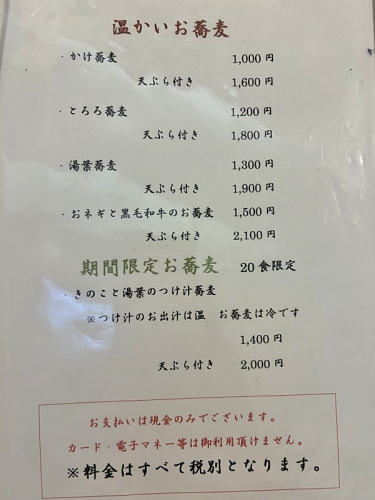 温かいお蕎麦
・かけ蕎麦 1,000円
天ぷら付き 1,600円
・とろろ蕎麦 1,200円
天ぷら付き 1,800円
・湯葉蕎麦 1,300円
天ぷら付き 1,900円
・おネギと黒毛和牛のお蕎麦 1,500円
天ぷら付き 2,100円
期間限定お蕎麦 20食限定
・きのこと湯葉のつけ汁蕎麦
※つけ汁のお出汁は温 お蕎麦は冷です
1,400円
天ぷら付き 2,000円
お支払いは現金のみでございます。
カード・電子マネー等は御利用頂けません。
※料金はすべて税別となります。